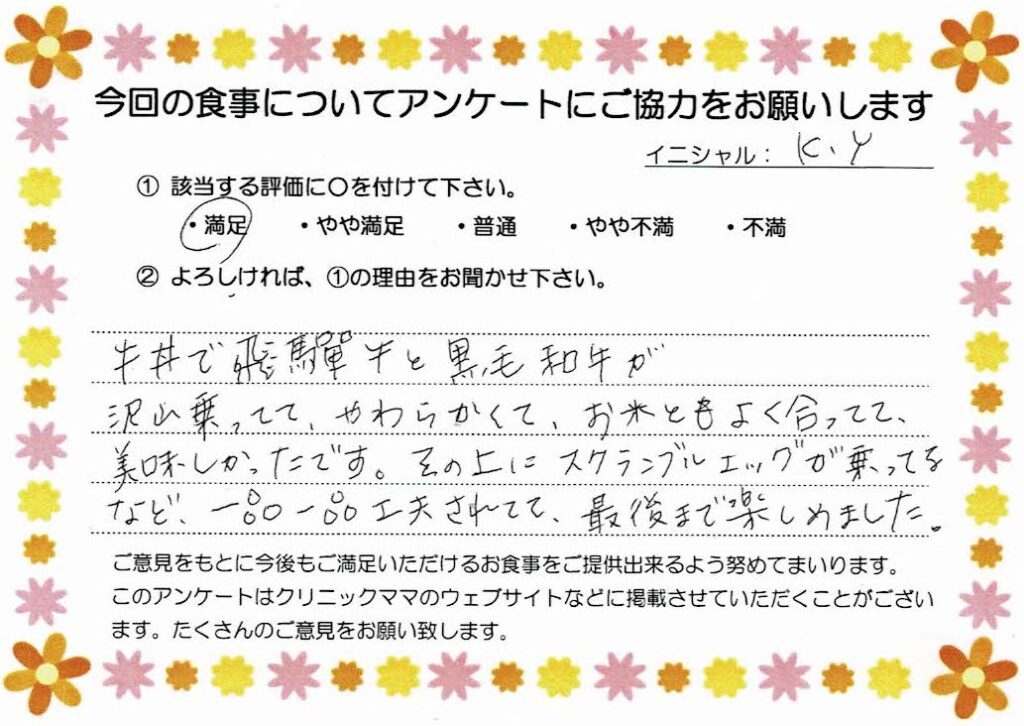 今回の食事についてアンケートにご協力をお願いします
イニシャル： K、Y
① 該当する評価に〇を付けて下さい。
・満足 ・やや満足 ・普通 ・やや不満 ・不満
② よろしければ、①の理由をお聞かせ下さい。
牛丼で飛騨牛と黒毛和牛が
沢山乗ってて、やわらかくて、お米ともよく合ってて、
美味しかったです。その上にスクランブルエッグが乗ってる
など、一品一品工夫されてて、最後まで楽しめました。
ご意見をもとに今後もご満足いただけるお食事をご提供出来るよう努めてまいります。
このアンケートはクリニックママのウェブサイトなどに掲載させていただくことがござい
ます。たくさんのご意見をお願い致します。